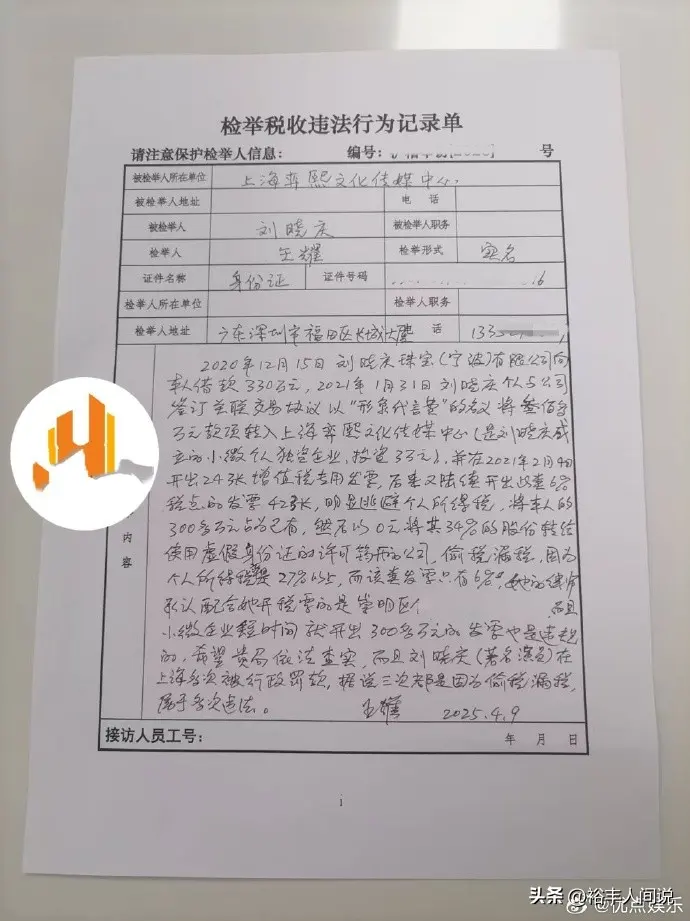 检举税收违法行为记录单
请注意保护检举人信息： 编号： 号
被检举人所在单位 上海弈熙文化传媒中心.
被检举人地址 电 话
被检举人 刘晓庆 被检举人职务
检举人 王耀 检举形式 实名
证件名称 身份证 证件号码 16
检举人所在单位 检举人职务
检举人地址 广东深圳市福田区长城大厦 话 133
内容
2020年12月15日刘晓庆珠宝(宁波)有限公司向
本人借款330万元，2021年1月31日刘晓庆个人与公司
签订关联交易协议以“形象代言费”的名义将叁佰多
万元款项转入上海弈熙文化传媒中心(是刘晓庆成
立的小微个人独资企业，投资3万元)，并在2021年2月4日
开出24张增值税专用发票，后来又陆续开出此类6%
税点的发票42张，明显逃避个人所得税，将本人的
300多万元占为己有，然后以0元将其34%的股份转给
使用虚假身份证的许可筠开的公司，偷税漏税，因为
个人所得税是27%以上，而该类发票只有6%，她的律师
承认配合她开税票的是崇明区 而且
小微企业短时间就开出300多万元的发票也是违规
的，希望贵局依法查实，而且刘晓庆(著名演员)在
上海多次被行政罚款，据说三次都是因为偷税漏税，
属于多次违法。 王耀 2025.4.9
接访人员工号： 年 月 日
1
头条 @裕丰人间说
@优点娱乐